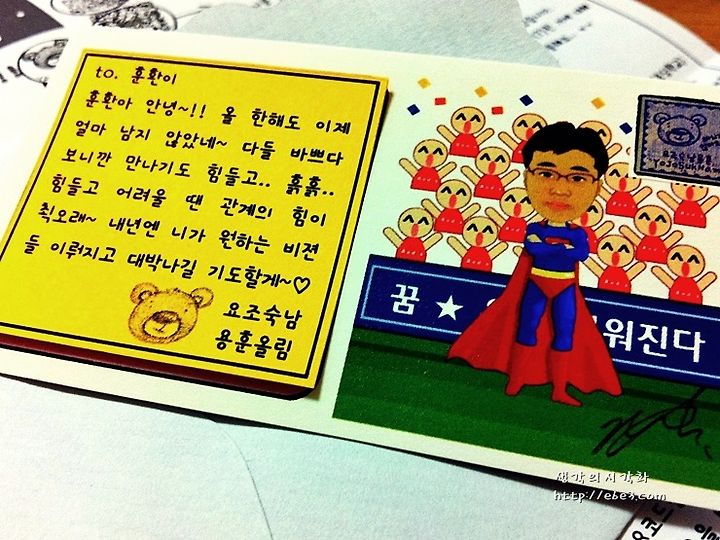 to. 훈환이
훈환아 안녕~!! 올 한해도 이제
얼마 남지 않았네~ 다들 바쁘다
보니깐 만나기도 힘들고.. 흙흙..
힘들고 어려울 땐 관계의 힘이
최오래~ 내년엔 니가 원하는 비젼
들 이뤄지고 대박나길 기도할게~♡
요조숙남
용훈올림
꿈 ★ 워진다
생각의시각화
http://ebe3.com